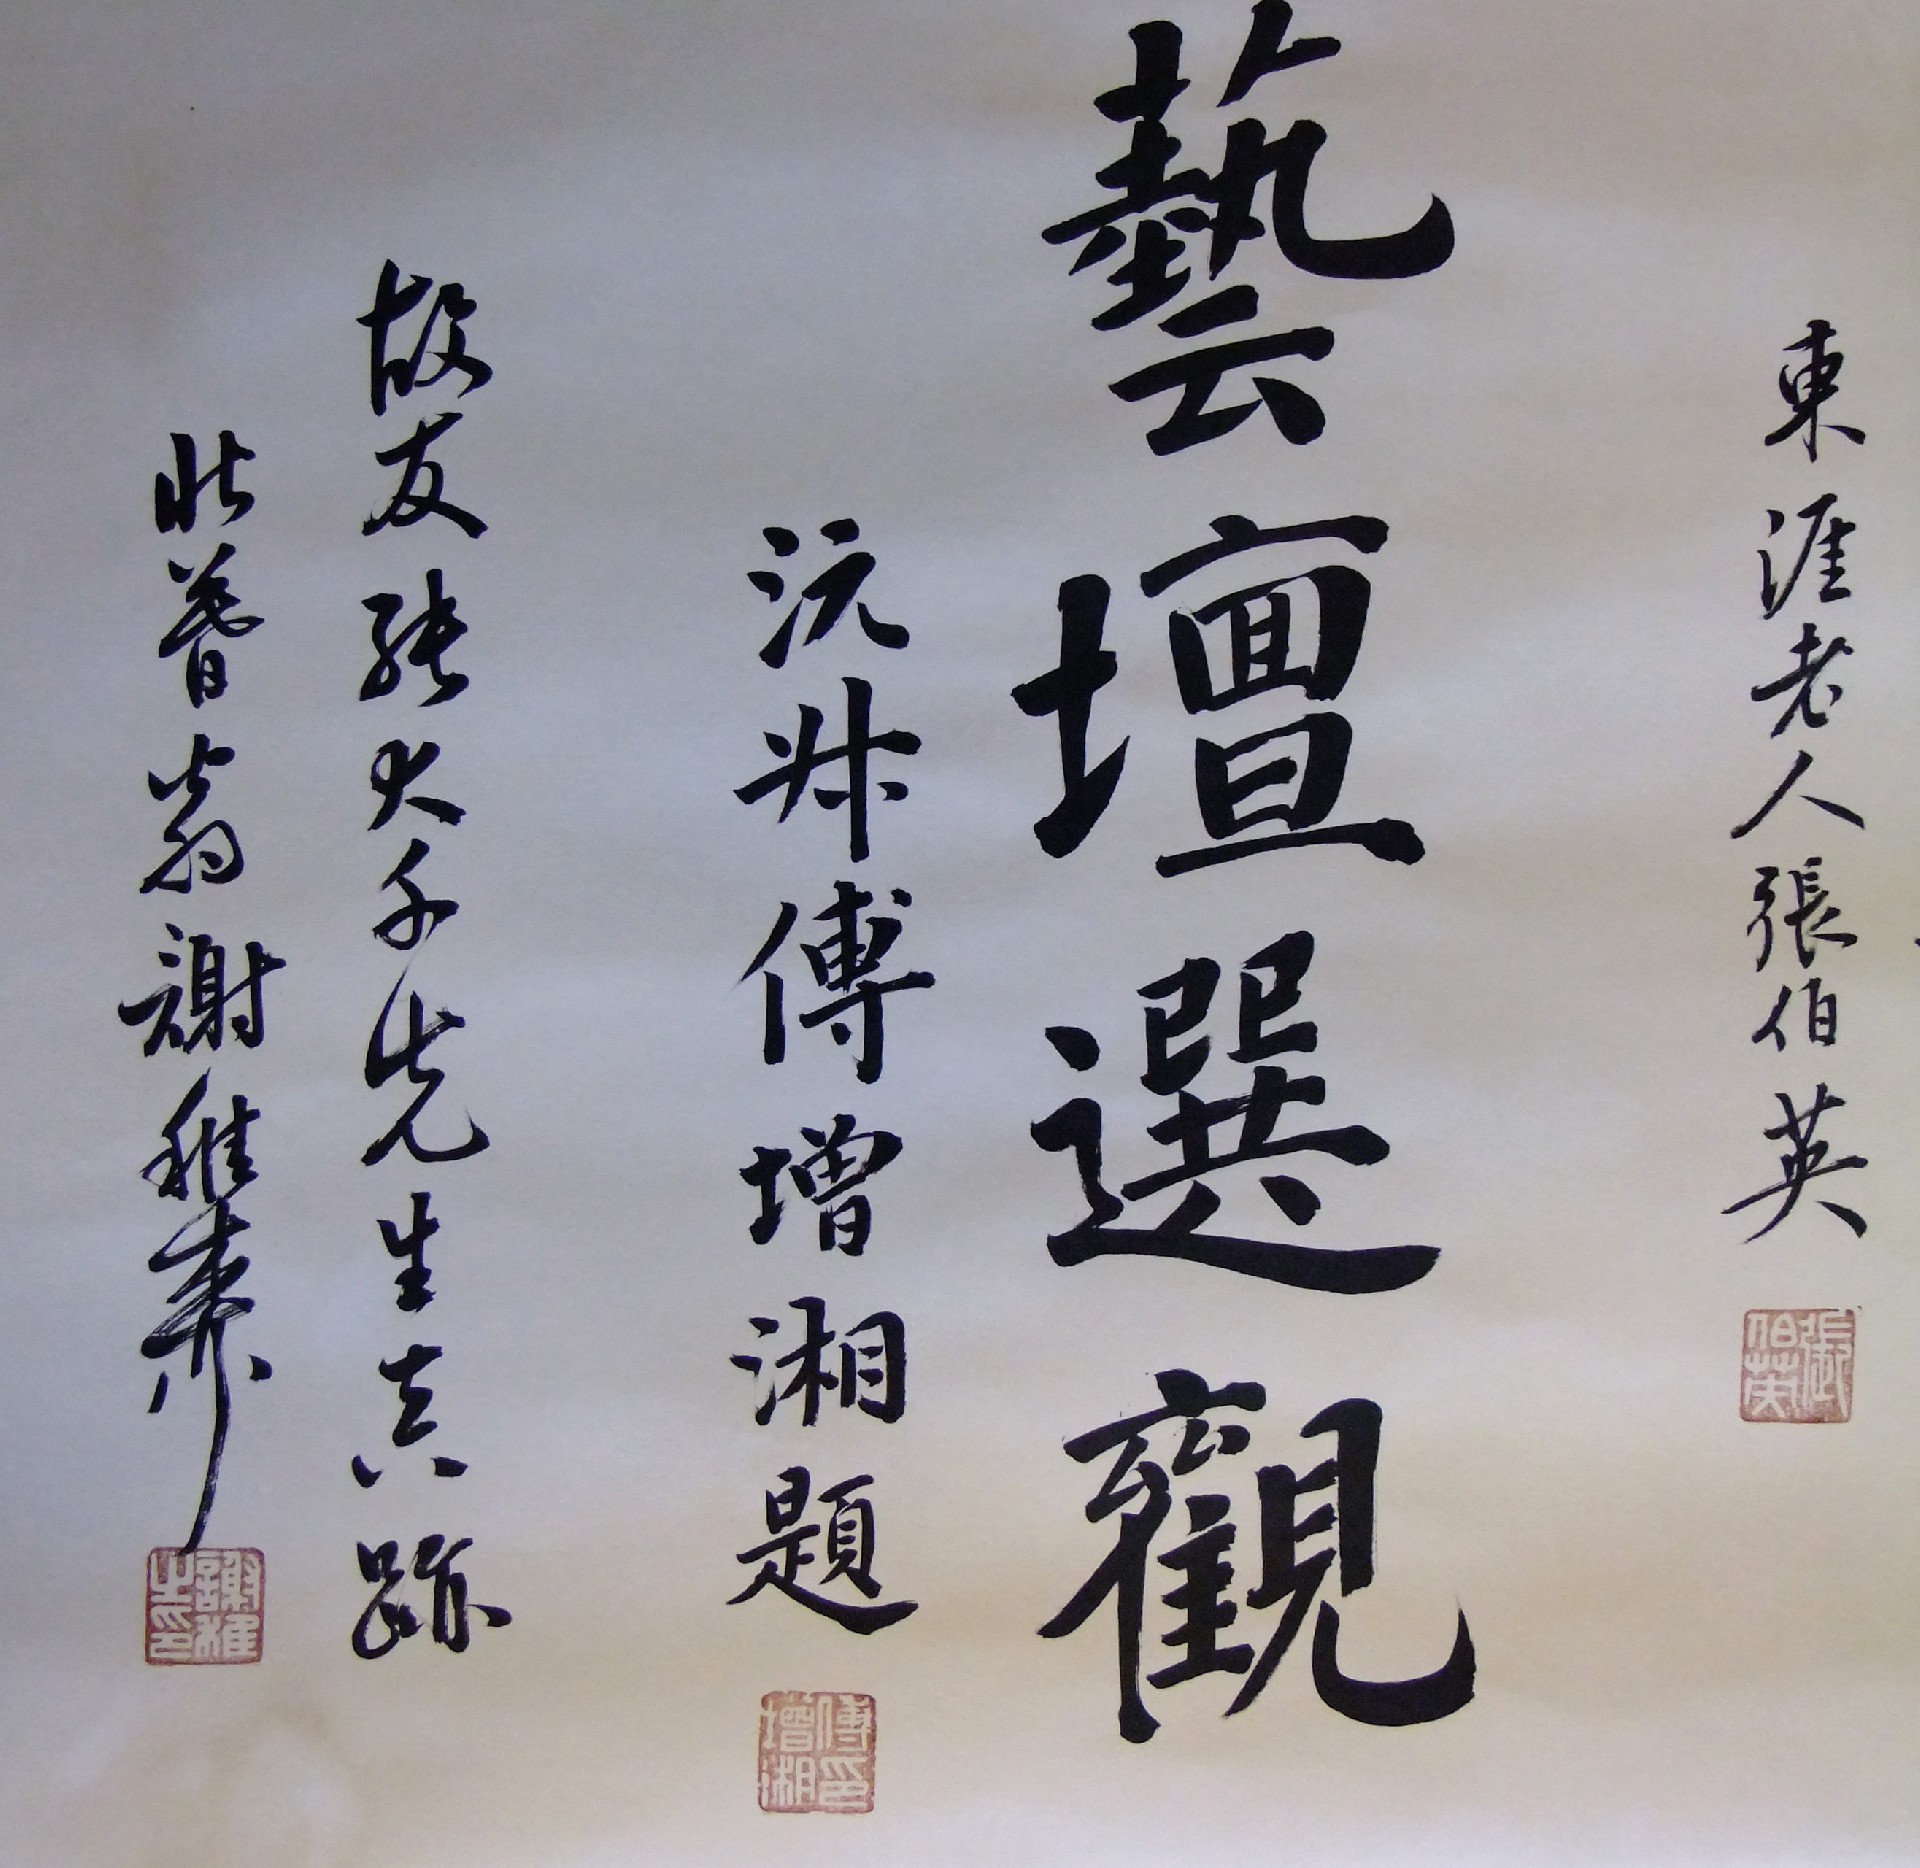 東涯老人張伯英
張伯英
藝壇選觀
沅叔傅增湘題
傅印增湘
故友張大千先生真跡
壯暮翁謝稚柳
謝稚之印